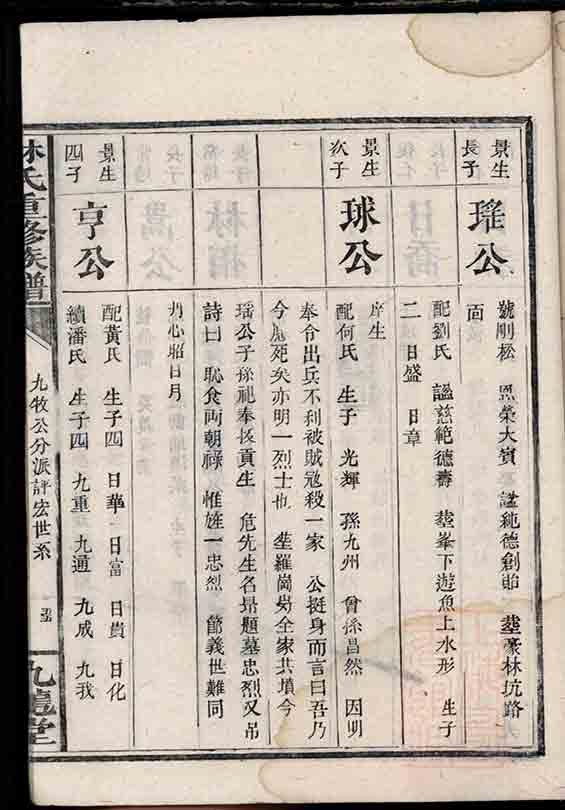 景生
長子
瑤公
號剛松 恩榮大賓 謚純德創貽 塟豪林坑路
面
配劉氏 謚慈範德壽 塟峯下遊魚上水形 生子
二 日盛 日章
景生
次子
球公
庠生
配何氏 生子 光輝 孫九州 曾孫昌然 因明
奉令出兵不利被賊冦殺一家 公挺身而言曰吾乃
今應死矣亦明一烈士也 塟羅崗㘭全家共墳今
瑤公子孫祀奉拔貢生 危先生名昻題墓忠烈又吊
詩曰 恥食両朝祿 惟旌一忠烈 節義世難同
丹心昭日月
景生
四子
亨公
配黃氏 生子四 日華 日富 日貴 日化
續潘氏 生子四 九重 九通 九成 九我
林氏重修族譜
九牧公分派評宏世系
九龍堂